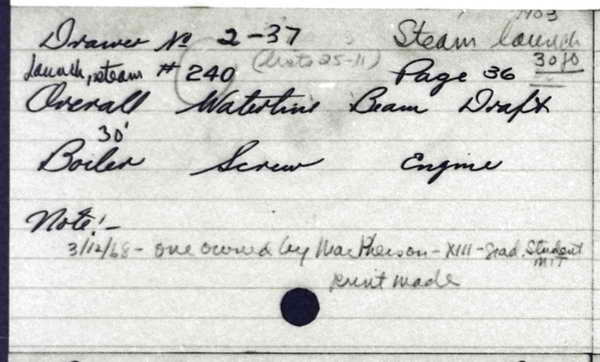 1903
Drawer No 2-37 Steam launch
launch, steam #240 (Note 25-11) Page 36 30 ft
Overall Waterline Beam Draft
30'
Boiler Screw Engine
Note:-
3/12/68 - one owned by MacPherson - XIII - Grad. Student
MIT
print made